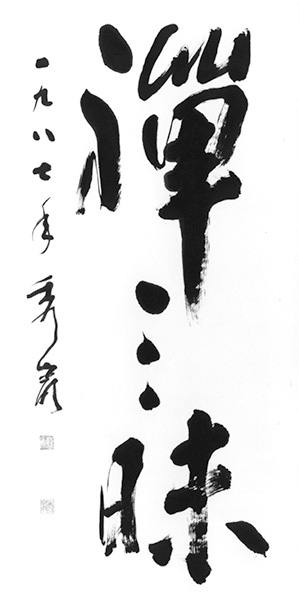 禪三昧
一九八七年 秀